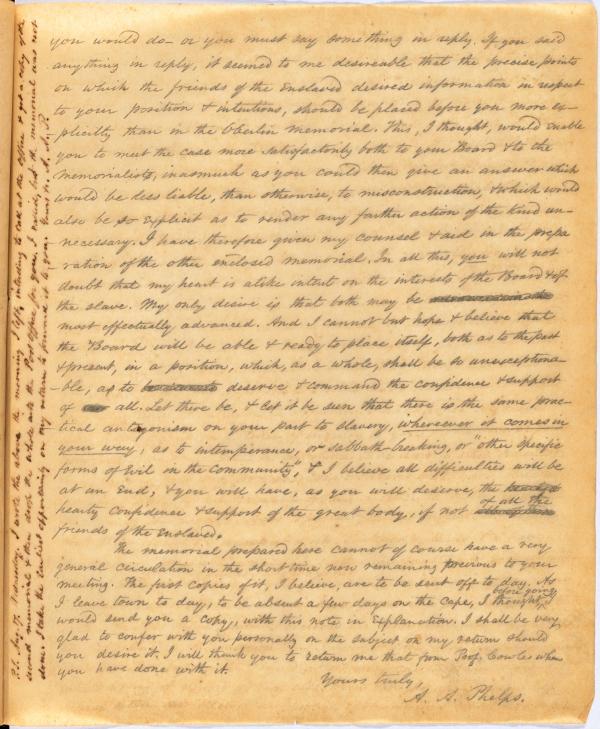 you would do – or you must say something in reply. If you said
anything in reply, it seemed to me desireable that the precise points
on which the friends of the Enslaved desired information in respect
to your position & intentions, should be placed before you more ex-
plicitly than in the Oberlin memorial. This, I thought, would enable
you to meet the case more satisfactorily both to your Board & to the
memorialists, inasmuch as you could then give an answer which
would be less liable, than otherwise, to misconstruction, & which would
also be so explicit as to render any farther action of the kind un-
necessary. I have therefore given my counsel & aid in the prepa-
ration of the other enclosed memorial. In all this, you will not
doubt that my heart is alike intent on the interests of the Board & of
the slave. My only desire is that both may be
most effectually advanced. And I cannot but hope & believe that
the Board will be able & ready to place itself, both as to the past
& present, in a position, which, as a whole, shall be so unexceptiona-
ble, as to deserve & command the confidence & support
of all. Let there be, & let it be seen that there is the same prac-
tical antagonism on your part to slavery, wherever it comes in
your way, as to intemperance, or sabbath-breaking, or "other specific
forms of Evil in the community", & I believe all difficulties will be
at an End, & you will have, as you will deserve, the
hearty confidence & support of the great body, if not of all the
friends of the Enslaved.
The memorial prepared here cannot of course have a very
general circulation in the short time now remaining previous to your
meeting. The first copies of it, I believe, are to be sent off to day. As
I leave town to day, to be absent a few days on the Cape, I thought, before going,
would send you a copy, with this note in Explanation. I shall be very
glad to confer with you personally on the subject on my return should
you desire it. I will thank you to return me that from Prof. Cowles when
you have done with it.
Yours truly,
A. A. Phelps.
P.S. Aug. 17. Monday. I wrote the above the morning I left, intending to call at the office & get a copy of the
second memorial & then leave the whole at the Post Office for you. I called, but the memorial was not
done. I take the earliest opportunity on my return to forward it. Yours &c. A. A. P.